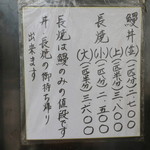 鰻丼(並)(一匹半分)二、七〇〇
(上)(一匹分)三、八〇〇
長焼(小)(一匹半分)二、五〇〇
(大)(一匹分)三、六〇〇
長焼は鰻のみの値段です
丼、長焼の御持ち帰り
出来ます